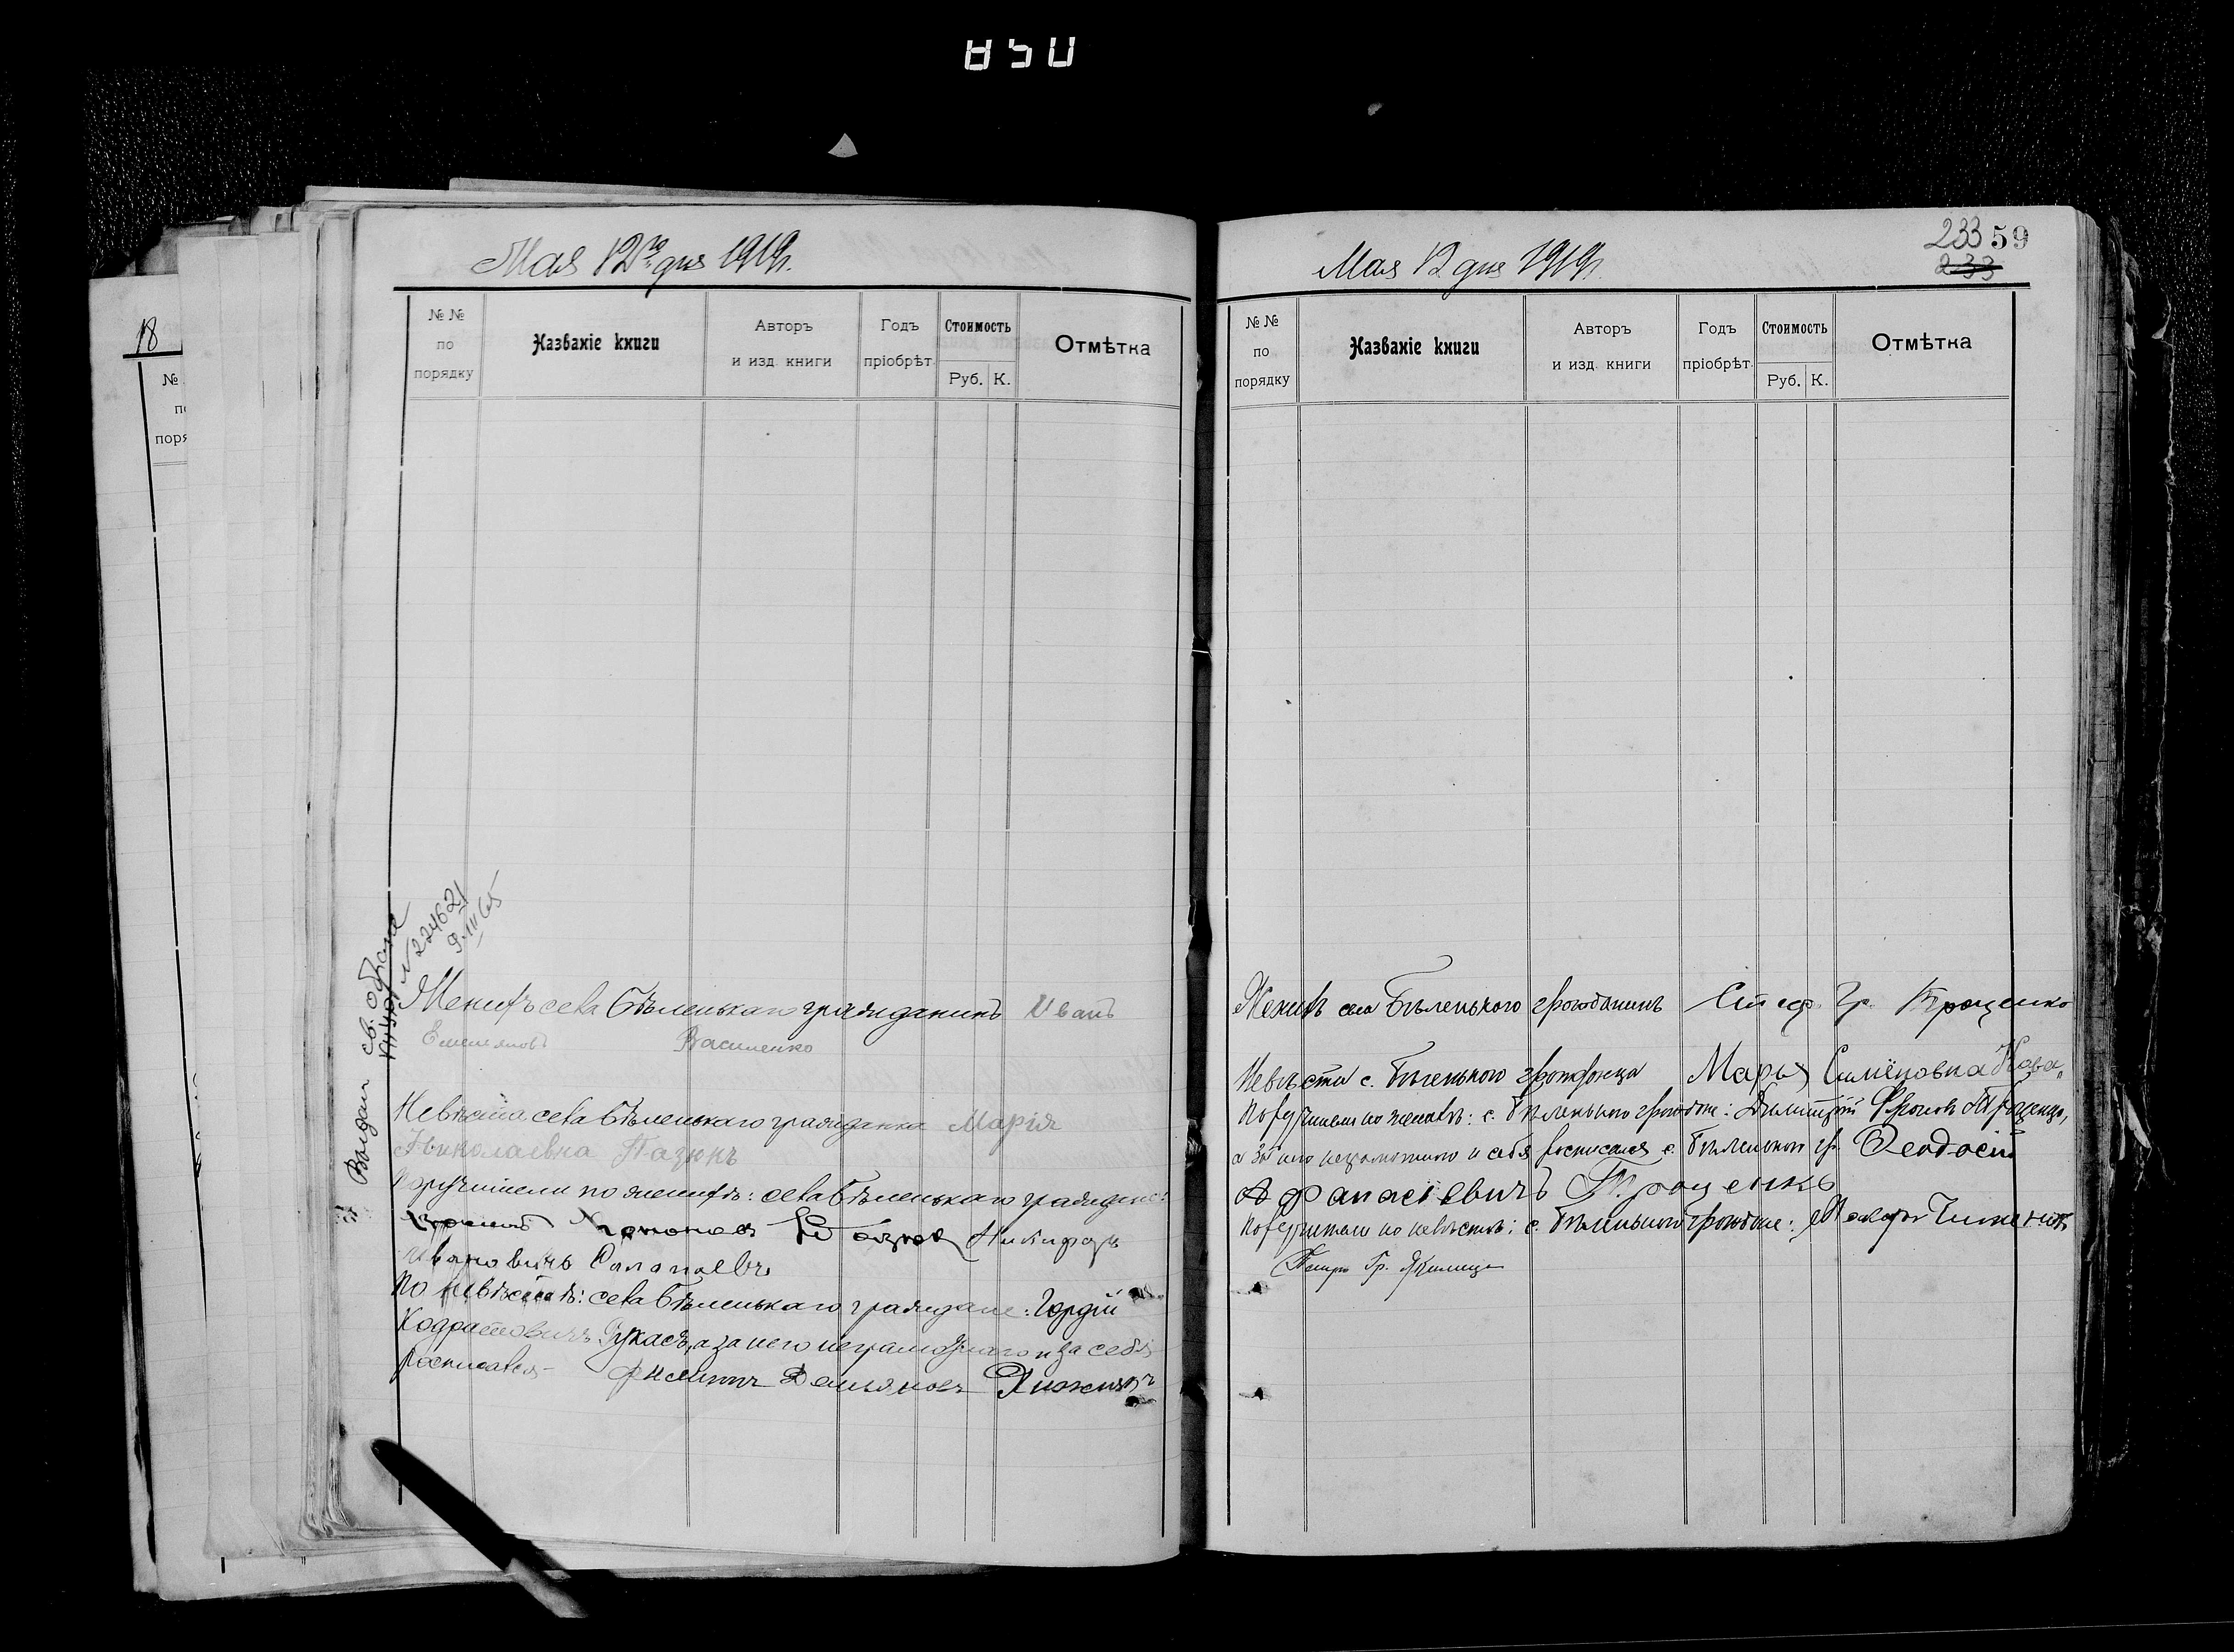 850
18
№
по
поря
Мая 12го дня 1919 г.
№ №
по
порядку
Названіе книги
Авторъ
и изд. книги
Годъ
пріобрѣт.
Стоимость
Руб. К.
Отмѣтка
Выдан св. обрака
№ 224621
9.III 65
Женихъ села Бѣленькаго гражданинъ Иванъ
Емельяновъ Василенко
Невѣста села Бѣленькаго гражданка Марія
Николаевна Пазюкъ
Поручители по женихѣ: села Бѣленькаго граждане:
Никифоръ
Ивановичъ
По невѣстѣ: села Бѣленькаго граждане: Гордій
Кодратовичъ а за него неграмотнаго и за себя
росписался Филиппъ Демьяновъ
Мая 12 дня 1919 г.
233 59
233
№ №
по
порядку
Названіе книги
Авторъ
и изд. книги
Годъ
пріобрѣт.
Стоимость
Руб. К.
Отмѣтка
Женихъ села Бѣленького гражданинъ Стеф. Гр. Троценко
Невѣста с. Бѣленького гражданка Марья Симёновна
Поручители по женихѣ: с. Бѣленького граждане: Димитрій Троценко,
а за него неграмотного и себя росписался с. Бѣленького гр. Феодосій
Афанасіевичъ Троценко
Поручители по невѣстѣ: с. Бѣленького граждане:
Петръ Гр.